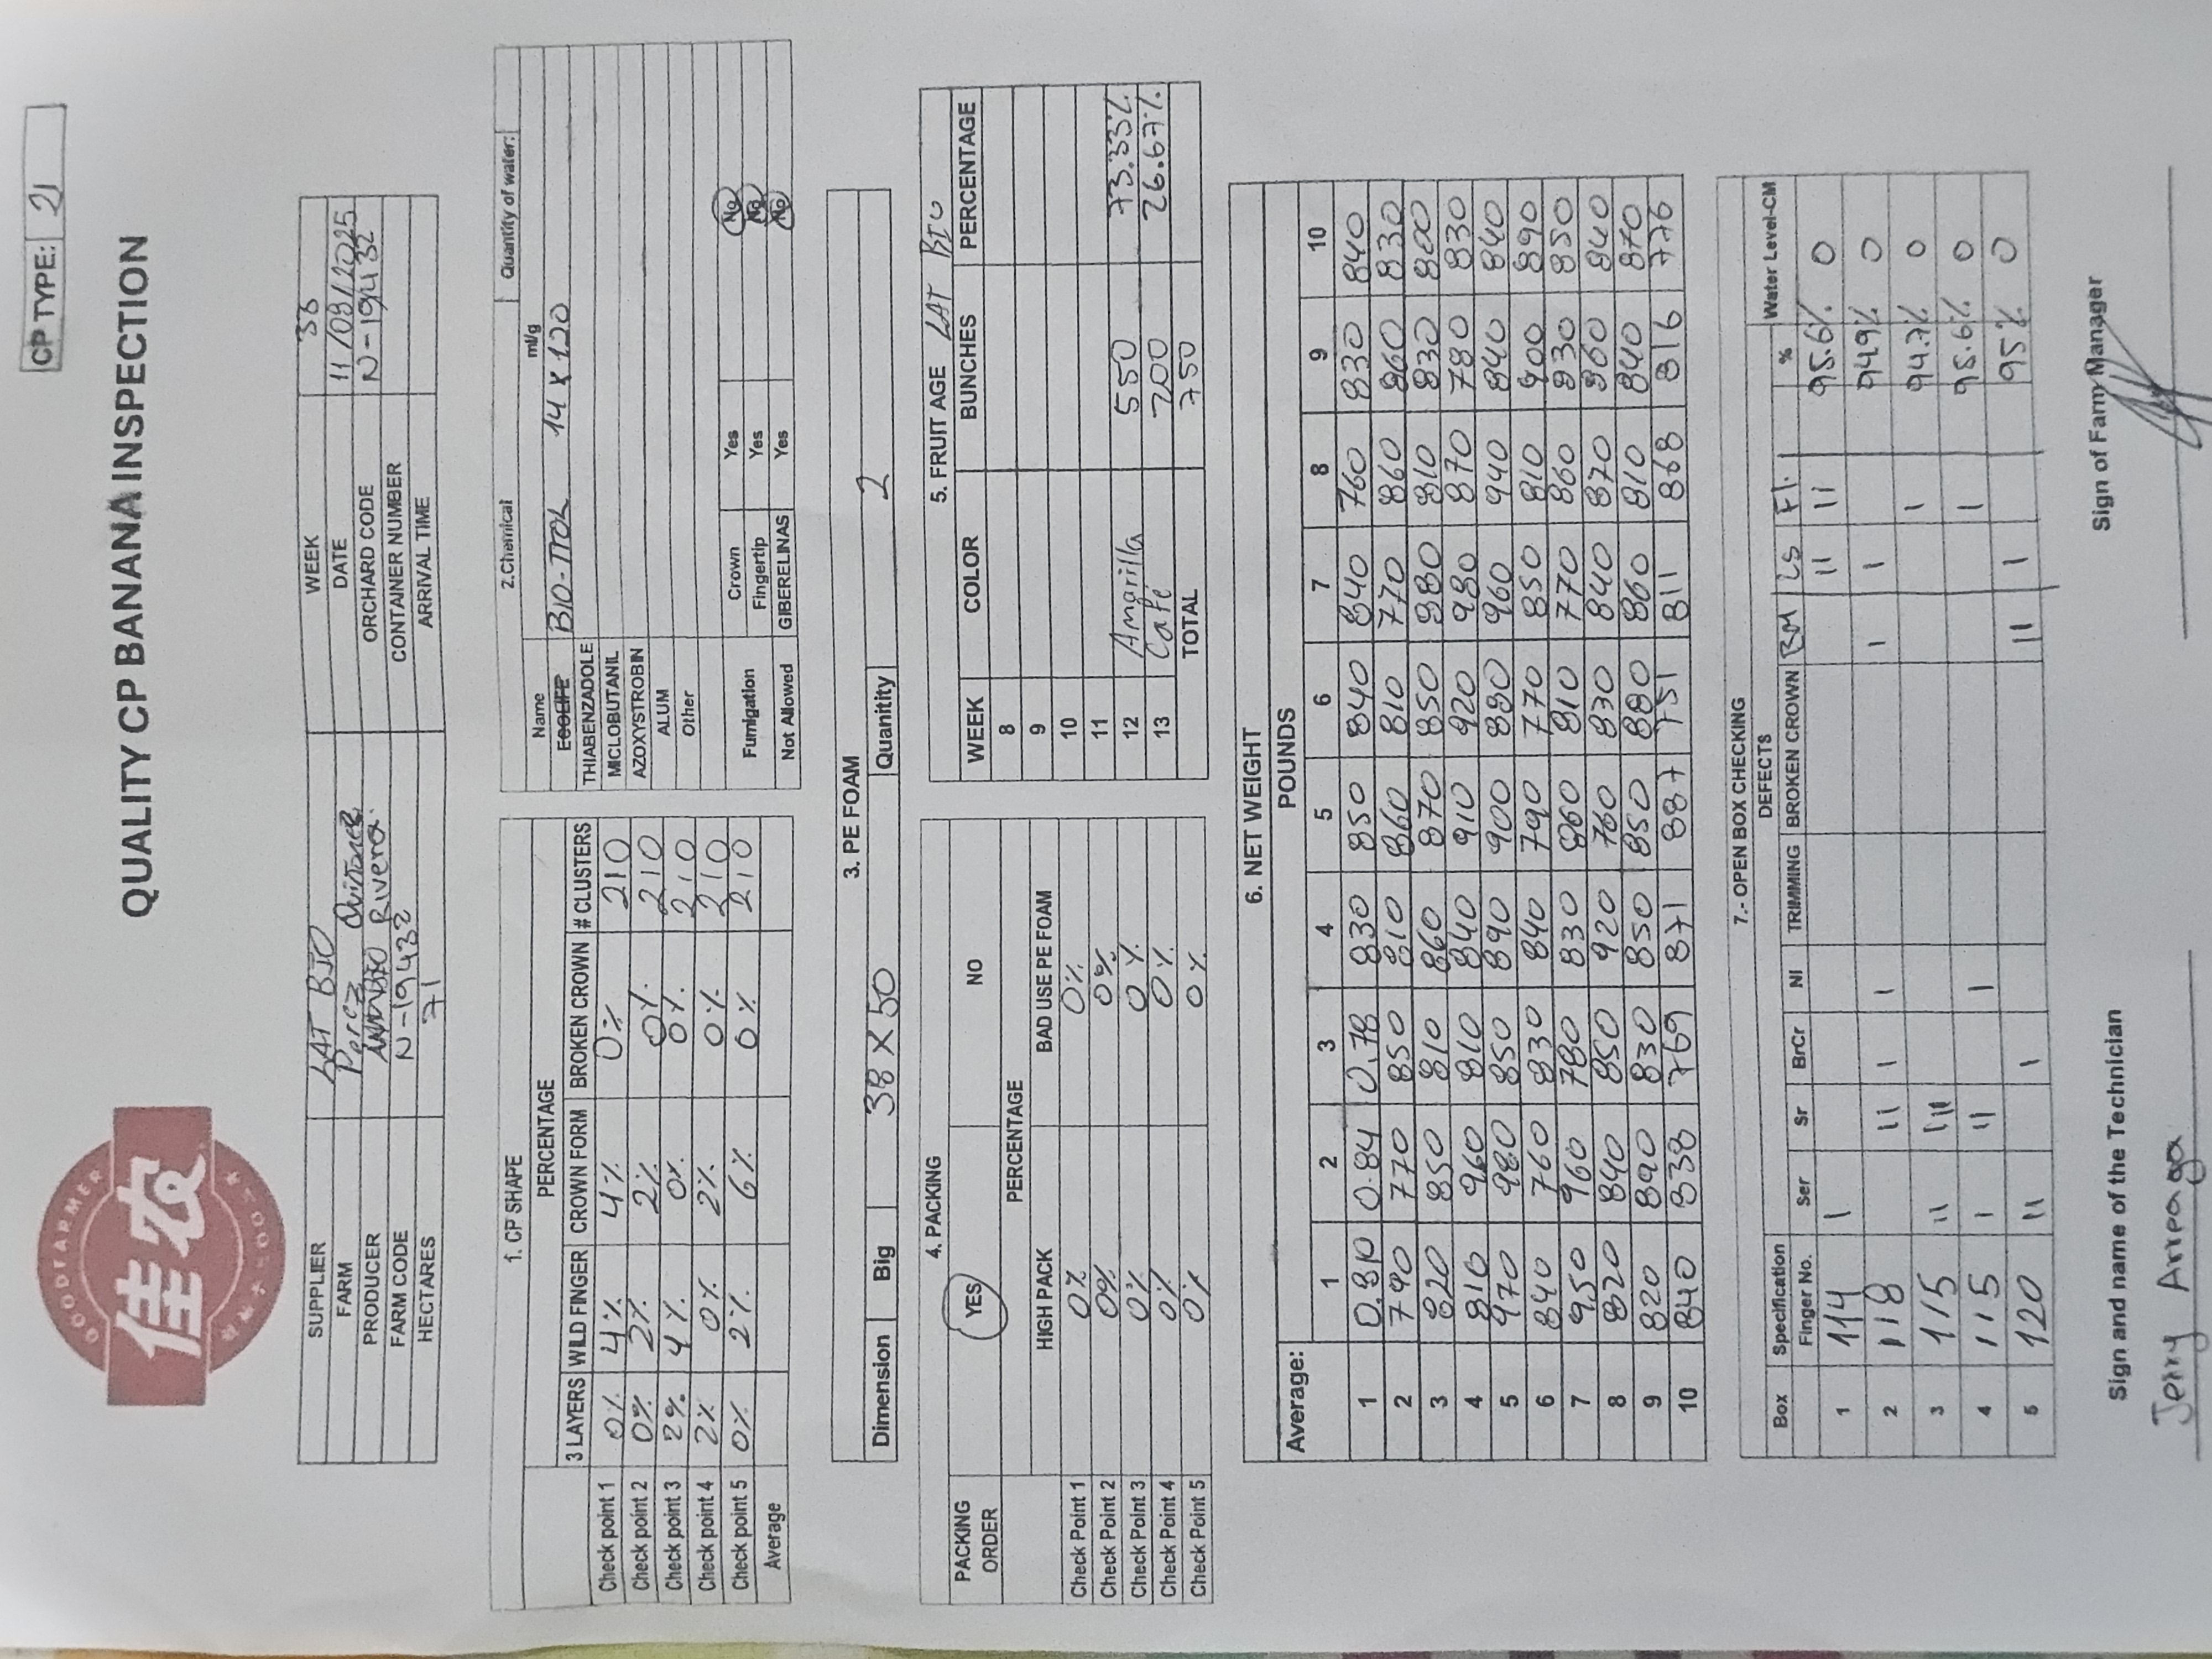 CP TYPE: 21
GOODFARMER
佳农
QUALITY CP BANANA INSPECTION
SUPPLIER LAT BIO WEEK 36
FARM Perez Quiñonez DATE 11/09/2025
PRODUCER Rivera ORCHARD CODE N-19432
FARM CODE N-19432 CONTAINER NUMBER
HECTARES 71 ARRIVAL TIME
1. CP SHAPE
PERCENTAGE
3 LAYERS WILD FINGER CROWN FORM BROKEN CROWN # CLUSTERS
Check point 1 0% 4% 4% 0% 210
Check point 2 0% 2% 2% 0% 210
Check point 3 2% 4% 0% 0% 210
Check point 4 2% 0% 2% 0% 210
Check point 5 0% 2% 6% 0% 210
Average
2.Chemical Quantity of water:
Name ml/g
ECOLIFE BIO-TTOL 14 x 120
THIABENZADOLE
MICLOBUTANIL
AZOXYSTROBIN
ALUM
Other
Fumigation Crown Yes No
Fingertip Yes No
Not Allowed GIBERELINAS Yes No
3. PE FOAM
Dimension Big 38 x 50 Quanitity 2
4. PACKING
PACKING ORDER YES NO
PERCENTAGE
HIGH PACK BAD USE PE FOAM
Check Point 1 0% 0%
Check Point 2 0% 0%
Check Point 3 0% 0%
Check Point 4 0% 0%
Check Point 5 0% 0%
5. FRUIT AGE LAT BIO
WEEK COLOR BUNCHES PERCENTAGE
8
9
10
11
12 Amarilla 550 73.33%
13 Café 200 26.67%
TOTAL 750
6. NET WEIGHT
POUNDS
Average:
1 2 3 4 5 6 7 8 9 10
1 0.810 0.84 0.78 830 850 840 840 760 830 840
2 790 770 850 810 860 810 770 860 860 830
3 820 850 810 860 870 850 880 810 830 800
4 810 960 810 840 910 920 980 870 780 830
5 970 980 850 890 900 880 960 940 840 840
6 840 760 830 840 790 770 850 810 900 890
7 950 960 780 830 860 810 770 860 830 850
8 820 840 850 920 760 830 840 870 860 840
9 820 890 830 850 850 880 860 810 840 870
10 840 838 769 871 887 751 811 868 816 776
7.- OPEN BOX CHECKING
Box Specification DEFECTS Water Level-CM
Finger No. Ser Sr BrCr NI TRIMMING BROKEN CROWN BM Ls Fl. %
1 114 I II II 95.6% 0
2 118 II I I I I 94.9% 0
3 115 II III I 94.7% 0
4 115 I II I I 95.6% 0
5 120 II I II I 95% 0
Sign and name of the Technician
Jerry Arreaga
Sign of Farm Manager